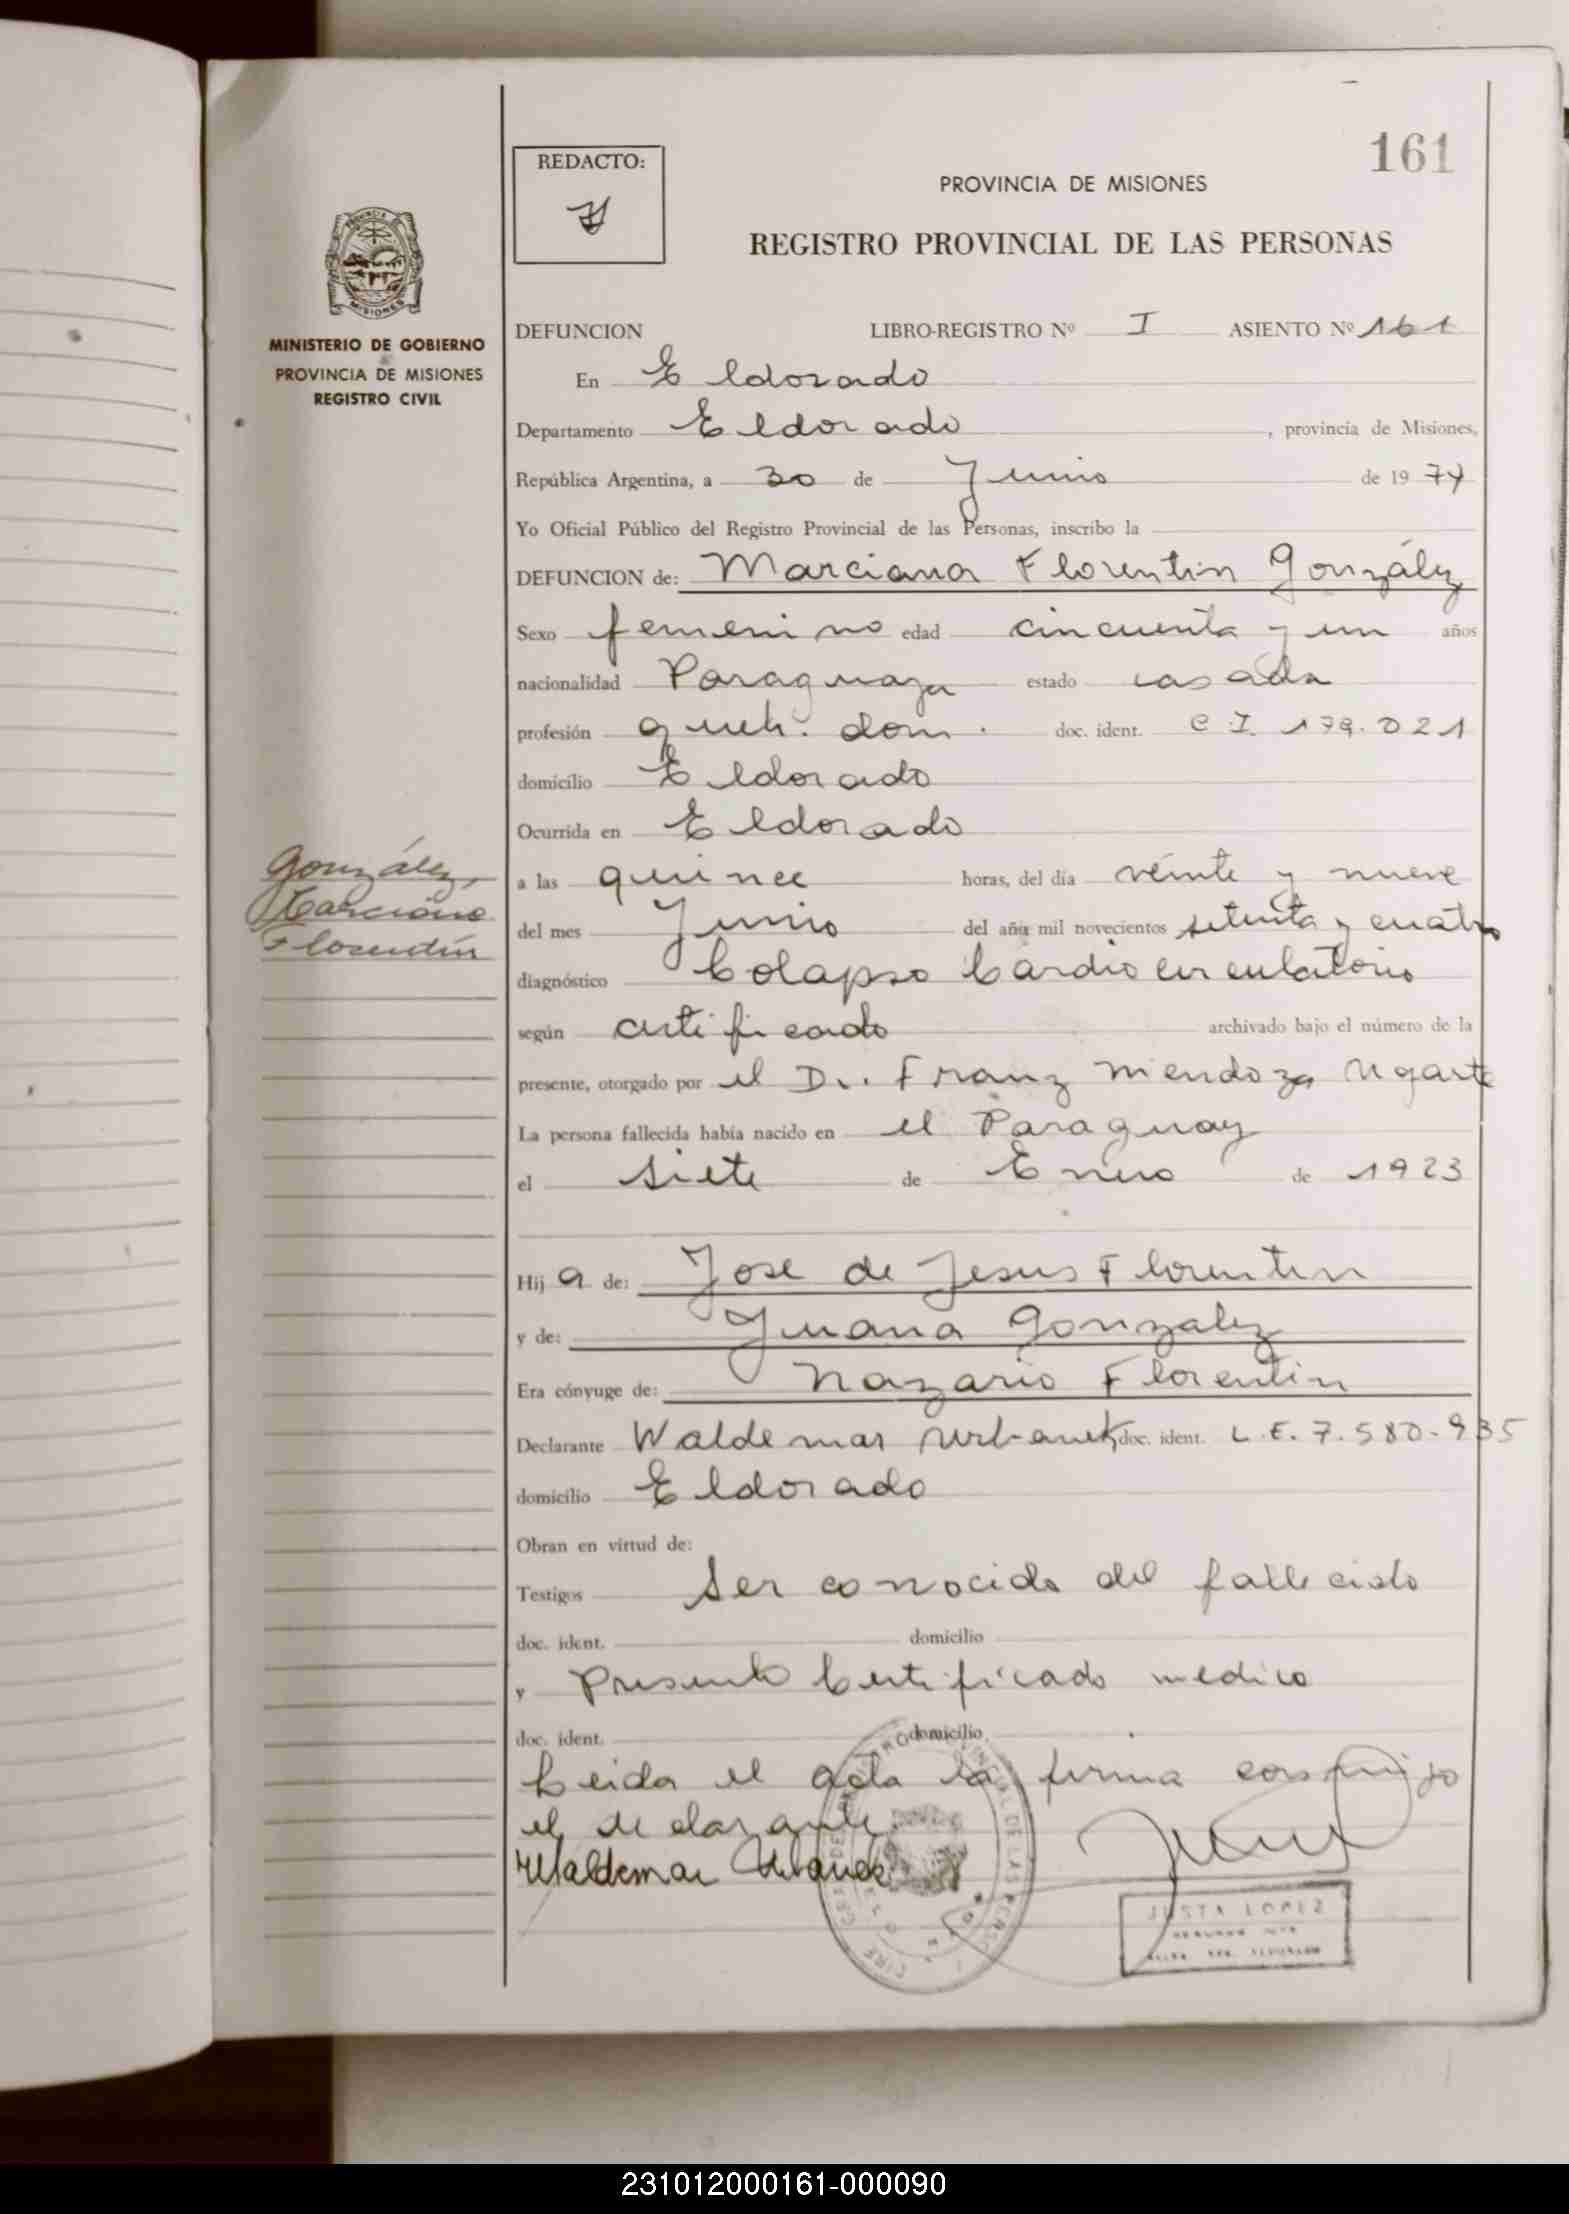 161
REDACTO:
PROVINCIA DE MISIONES
REGISTRO PROVINCIAL DE LAS PERSONAS
MINISTERIO DE GOBIERNO
PROVINCIA DE MISIONES
REGISTRO CIVIL
DEFUNCION LIBRO-REGISTRO Nº I ASIENTO Nº 161
En Eldorado
Departamento Eldorado, provincia de Misiones,
República Argentina, a 30 de Junio de 1974
Yo Oficial Público del Registro Provincial de las Personas, inscribo la
DEFUNCION de: Marciana Florentin González
Sexo femenino edad cincuenta y un años
nacionalidad Paraguaya estado casada
profesión queh. dom. doc. ident. C I. 179.021
domicilio Eldorado
Ocurrida en Eldorado
González,
Marciana
Florentín
a las quince horas, del día veinte y nueve
del mes Junio del año mil novecientos setenta y cuatro
diagnóstico Colapso Cardio circulatorio
según certificado archivado bajo el número de la
presente, otorgado por el Dr. Franz Mendoza Ugarte
La persona fallecida había nacido en el Paraguay
el siete de Enero de 1923
Hija de: Jose de Jesus Florentin
y de: Juana Gonzalez
Era cónyuge de: Nazario Florentin
Declarante Waldemar Urbanek doc. ident. L.E. 7.580.935
domicilio Eldorado
Obran en virtud de:
Testigos Ser conocido del fallecido
doc. ident. domicilio
y Presento Certificado medico
doc. ident. domicilio
Leida el acta la firma conmigo
el declarante
Waldemar Urbanek
JUSTA LOPEZ
231012000161-000090